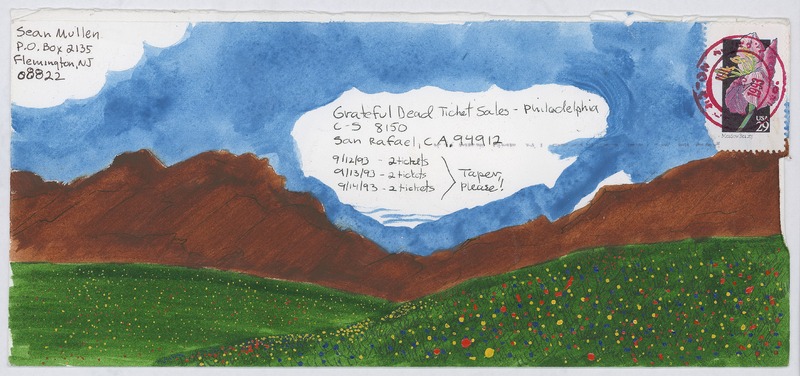 Sean Mullen
P.O. Box 2135
Flemington, NJ
08822
Grateful Dead Ticket Sales - Philadelphia
C-S 8150
San Rafael, C.A. 94912
9/12/93 - 2 tickets
9/13/93 - 2 tickets
9/14/93 - 2 tickets
Taper,
Please!
USA
29
Meadow Beauty
1993